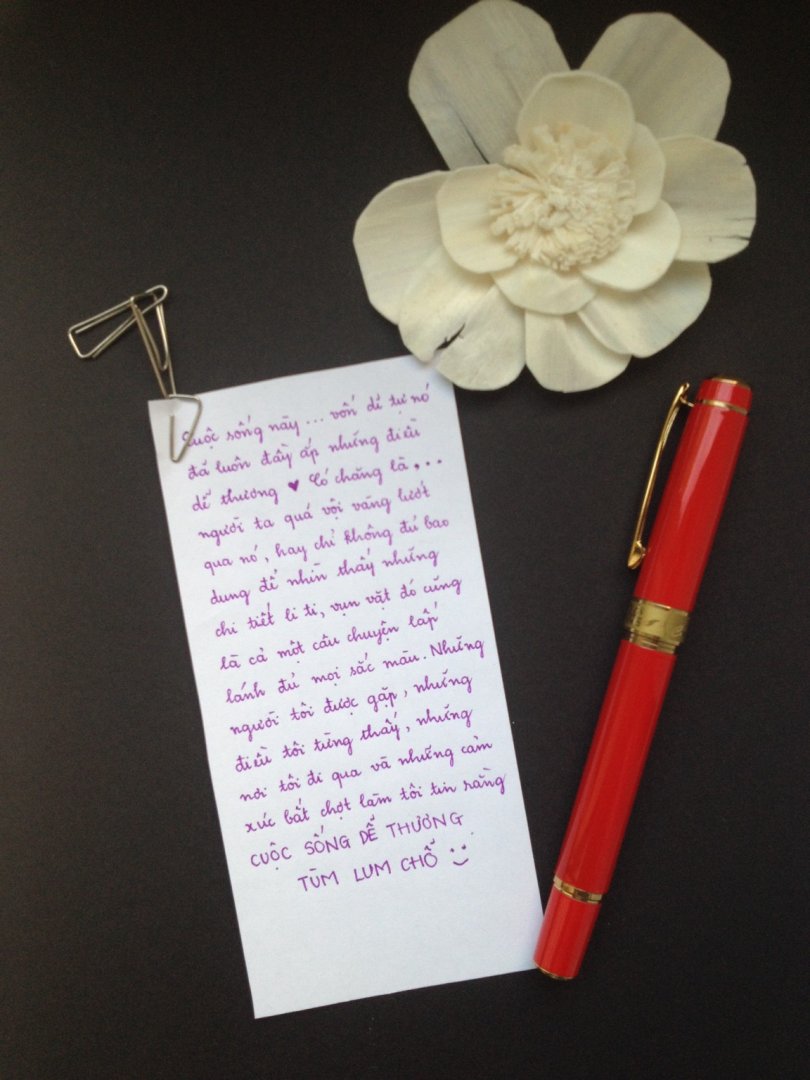 Cuộc sống này... vốn dĩ tự nó
đã luôn đầy ắp những điều
dễ thương ♥ Có chăng là...
người ta quá vội vàng lướt
qua nó, hay chỉ không đủ bao
dung để nhìn thấy những
chi tiết li ti, vụn vặt đó cũng
là cả một câu chuyện lấp
lánh đủ mọi sắc màu. Những
người tôi được gặp, những
điều tôi từng thấy, những
nơi tôi đi qua và những cảm
xúc bất chợt làm tôi tin rằng
CUỘC SỐNG DỄ THƯƠNG
TÙM LUM CHỖ :)